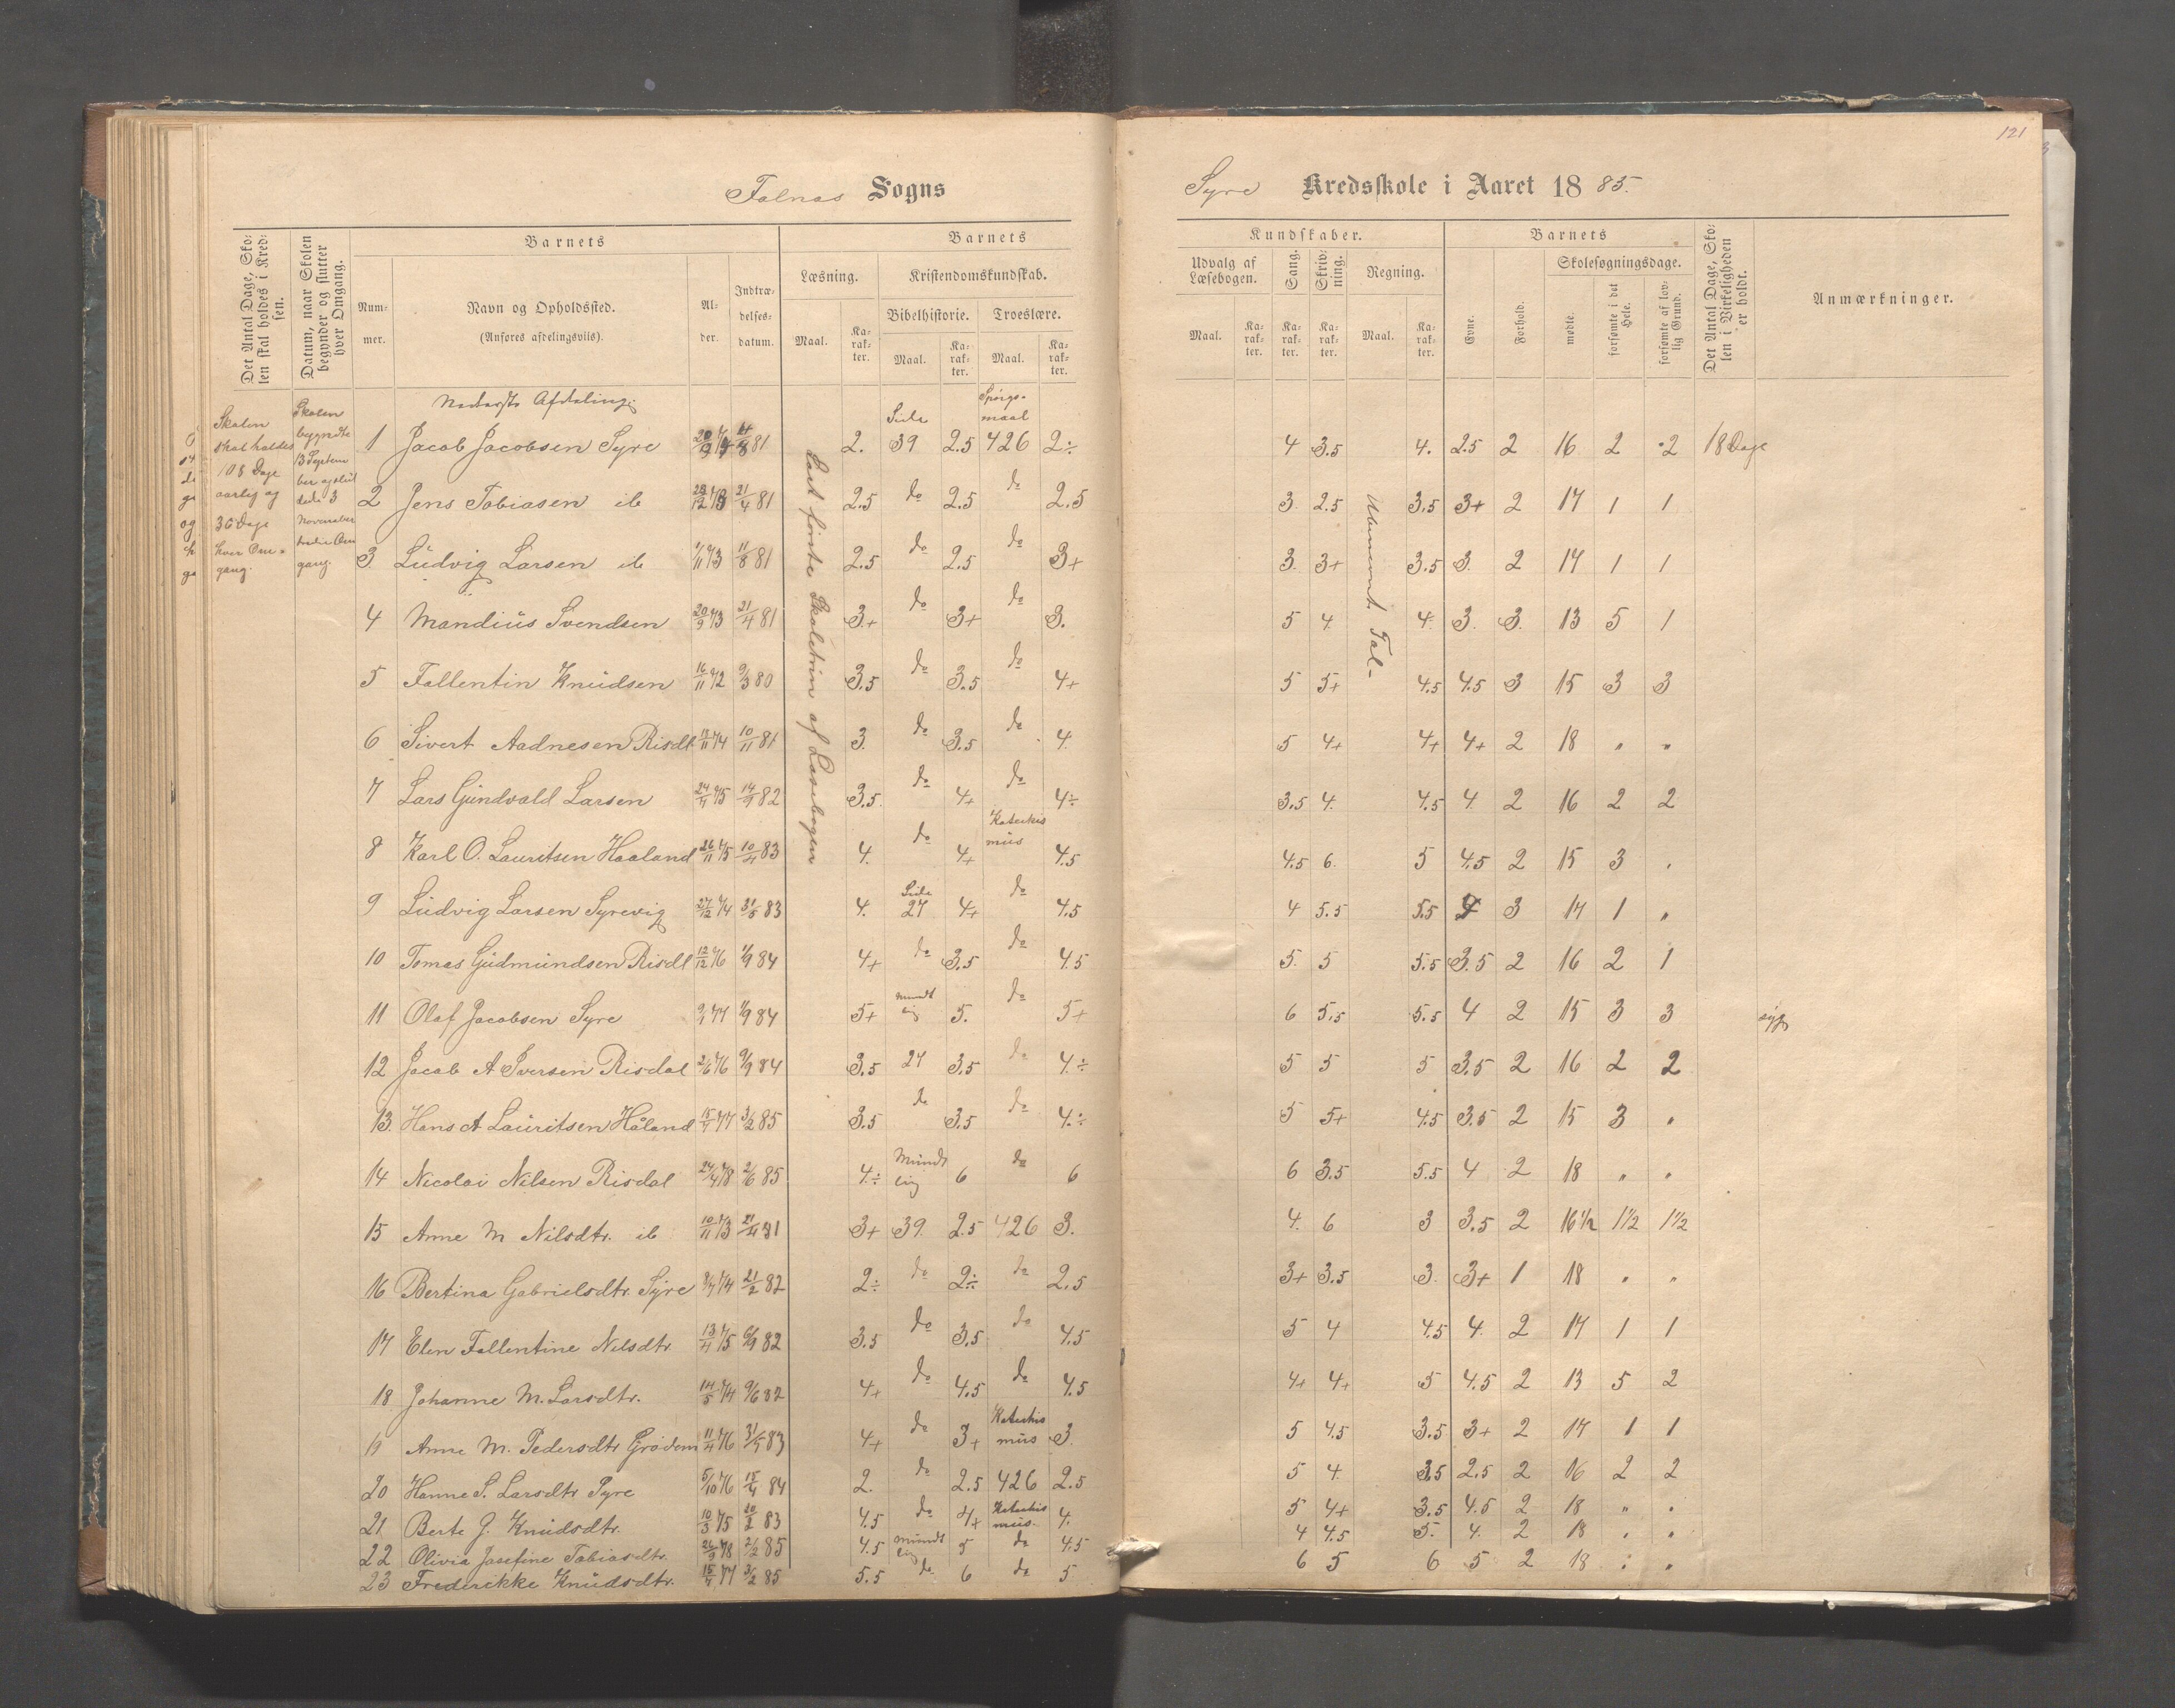 121
Falnæs Sogns
Syre Kredsskole i Aaret 1885.
Det Antal Dage, Skolen skal holdes i Kredsen.
Datum, naar Skolen begynder og slutter hver Omgang.
Barnets
Nummer.
Navn og Opholdssted.
(Anføres afdelingsvis).
Alder.
Indtrædelsesdatum.
Barnets
Læsning.
Maal.
Karakter.
Kristendomskundskab.
Bibelhistorie.
Maal.
Karakter.
Troeslære.
Maal.
Karakter.
Kundskaber.
Udvalg af Læsebogen.
Maal.
Karakter.
Sang.
Karakter.
Skrivning.
Karakter.
Regning.
Maal.
Karakter.
Barnets
Evne.
Forhold.
Skolesøgningsdage.
mødte.
forsømte i det Hele.
forsømte af lovlig Grund.
Det Antal Dage, Skolen i Virkeligheden er holdt.
Anmærkninger.
Nederste Afdeling:
Skolen skal holdes 108 Dage aarlig og 36 Dage hver Omgang.
Skolen begyndte 13 September og sluttede 3 November tredie Omgang.
Læst første Skoletrin af Læsebogen
Ubenævnt Tal-
1 Jacob Jacobsen Syre 20/9 74 11/8 81 2. Side 39 2.5 Spørgsmaal 426 2÷ 4 3.5 4. 2.5 2 16 2 2 18 Dage
2 Jens Tobiasen ib 28/12 73 21/4 81 2.5 do 2.5 do 2.5 3 2.5 3.5 3+ 2 17 1 1
3. Ludvig Larsen ib 1/11 73 11/8 81 2.5 do 2.5 do 3+ 3. 3+ 3.5 3. 2 17 1 1
4 Mandius Svendsen 20/9 73 21/4 81 3+ do 3+ do 3. 5 4. 4. 3. 3. 13 5 1
5 Fallentin Knudsen 16/11 72 9/3 80 3.5 do 3.5 do 4+ 5 5+ 4.5 4.5 3 15 3 3
6 Sivert Aadnesen Risdl 13/11 74 10/11 81 3. do 3.5 do 4. 5 4+ 4+ 4+ 2 18 " "
7 Lars Gundvald Larsen 24/4 75 14/9 82 3.5. do 4+ do 4÷ 3.5 4. 4.5 4. 2 16 2 2
8 Karl O. Lauritsen Haaland 26/11 75 10/4 83 4. do 4+ Katekismus 4.5 4.5 6. 5 4.5 2 15 3 .
9 Ludvig Larsen Syrevig 27/12 74 31/5 83 4. Side 27 4+ do 4.5 4 5.5 5.5 4 3 17 1 "
10 Tomas Gudmundsen Risdl 12/12 76 1/9 84 4+ do 3.5 do 4.5 5. 5 5.5 3.5 2 16 2 1
11 Olaf Jacobsen Syre 9/1 77 1/9 84 5+ mundtlig 5. do 5+ 6 5.5 5.5 4 2 15 3 3 syg
12 Jacob A Iversen Risdal 2/6 76 9/9 84 3.5 27 3.5 do 4.÷ 5 5 5 3.5 2 16 2 2
13. Hans A Lauritsen Håland 15/7 77 3/2 85 3.5 do 3.5 do 4.÷ 5 5+ 4.5 3.5 2 15 3 "
14 Nicolai Nilsen Risdal 24/4 78 2/6 85 4.÷ Mundtlig 6 do 6 6 3.5 5.5 4 2 18 " "
15 Anne M Nilsdtr. ib 10/11 73 21/4 81 3+ 39. 2.5 426 3. 4. 6 3 3.5 2 16 1/2 1 1/2 1 1/2
16 Bertina Gabrielsdtr. Syre 3/7 74 21/2 82 2÷ do 2÷ do 2.5 3+ 3.5 3. 3+ 1 18 " "
17 Elen Fallentine Nilsdtr. 13/4 75 6/9 82 3.5 do 3.5 do 4.5 5 4 4.5 4. 2 17 1 1
18 Johanne M. Larsdtr. 14/5 74 9/6 82 4+ do 4.5 do 4.5 4+ 4+ 5 4.5 2 13 5 2
19 Anne M. Pedersdtr Grødem 11/4 76 31/5 83 4+ do 3+ Katekismus 3. 5 4.5 3.5 3+ 2 17 1 1
20 Hanne S. Larsdtr Syre 5/10 76 15/4 84 2. do 2.5 426 2.5 5 4. 3.5 2.5 2 16 2 2
21 Berte J. Knudsdtr. 10/3 75 20/2 83 4.5 do 4+ Katekismus. 4. 5 4+ 3.5 4.5 2 18 " .
22 Olivia Josefine Tobiasdtr. 26/9 78 2/2 85 4.5 mundtlig 5 do 4.5 4 4.5 5. 4. 2 18 . .
23 Frederikke Knudsdtr. 15/7 77 3/2 85 5.5 do 6 do 5 6 5 6 5 2 18 . "